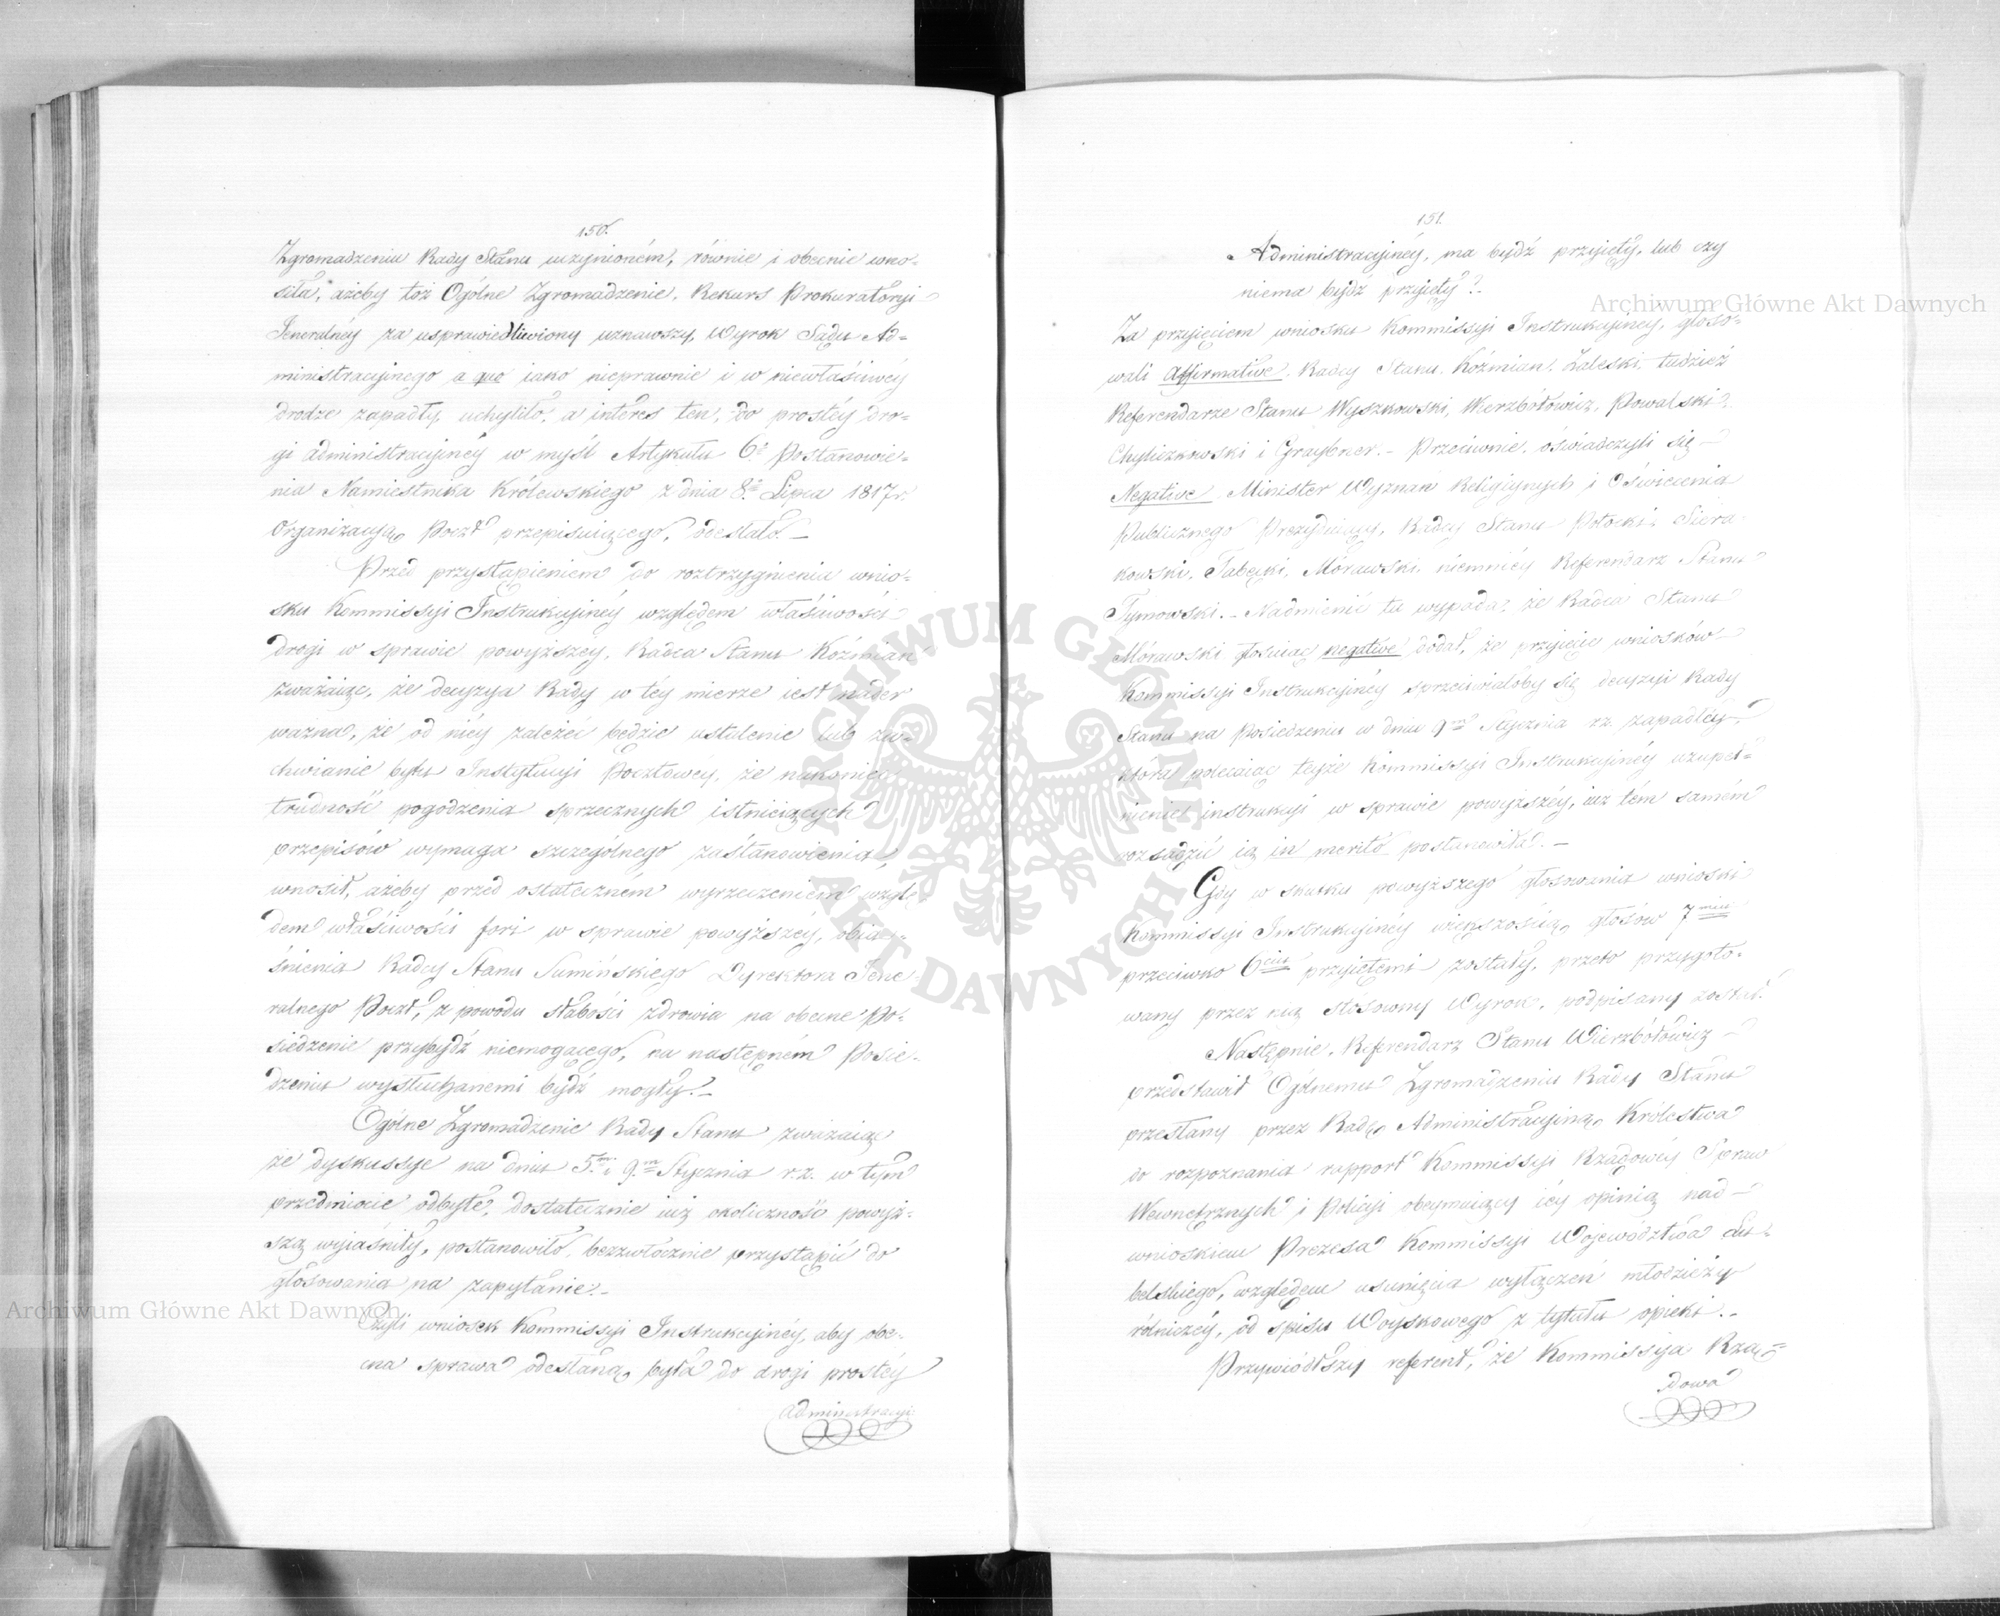 150.
Zgromadzeniu Rady Stanu uczynioném, równie i obecnie wno-
siła, ażeby toż Ogólne Zgromadzenie, Rekurs Prokuratoryi
Jeneralnéy za usprawiedliwiony uznawszy, Wyrok Sądu Ad-
ministracyjnego a quo iako nieprawnie i w niewłaściwéy
drodze zapadły, uchyliło, a interes ten, do prostéy dro-
gi administracyjnéy w myśl Artykułu 6º Postanowie-
nia Namiestnika Królewskiego z dnia 8º Lipca 1817 r.
Organizacyą Poczt przepisuiącego, odesłało.–
Przed przystąpieniem do roztrzygnienia wnio-
sku Kommissyi Instrukcyinéy względem właściwości
drogi w sprawie powyższey, Radca Stanu Koźmian
zważaiąc, że decyzya Rady w téy mierze iest nader
ważna, że od niéy zależeć będzie ustalenie lub za-
chwianie bytu Instytucyi Pocztowéy, że nakoniec
trudność pogodzenia sprzecznych istnieiących
przepisów wymaga szczególnego zastanowienia,
wnosił, ażeby przed ostateczném wyrzeczeniem wzglę-
dem właściwości fori w sprawie powyższéy, obia-
śnienia Radcy Stanu Sumińskiego Dyrektora Jene-
ralnego Poczt, z powodu słabości zdrowia na obecne Po-
siedzenie przybydź niemogącego, na następném Posie-
dzeniu wysłuchanemi bydź mogły.–
Ogólne Zgromadzenie Rady Stanu zważaiąc
że dyskussye na dniu 5m i 9m Stycznia r. z. w tym
przedmiocie odbyte, dostatecznie iuż okoliczność powyż-
szą wyiaśniły, postanowiło bezzwłocznie przystąpić do
głosowania na zapytanie.–
Czyli wniosek Kommissyi Instrukcyinéy, aby obe-
cna sprawa odesłaną była do drogi prostéy
Administracyi:
151.
Administracyinéy, ma bydź przyięty, lub czy
niema bydź przyięty?
Za przyięciem wniosku Kommissyi Instrukcyinéy, głoso-
wali Affirmative, Radcy Stanu, Koźmian, Zaleski, tudzież
Referendarze Stanu Wyszkowski, Wierzbołowicz, Powalski,
Chyliczkowski i Graybner.– Przeciwnie, oświadczyli się –
Negative, Minister Wyznań Religiynych i Oświecenia
Publicznego Prezyduiący, Radcy Stanu Potocki, Siera-
kowski, Tabęcki, Morawski, niemniéy Referendarz Stanu
Tymowski.– Nadmienić tu wypada, że Radca Stanu
Morawski głosuiąc negative dodał, że przyięcie wniosków
Kommissyi Instrukcyinéy sprzeciwiałoby się decyzyi Rady
Stanu na Posiedzeniu w dniu 9m Stycznia r. z. zapadłéy,
która polecaiąc teyże Kommissyi Instrukcyinéy uzupeł-
nienie instrukcyi w sprawie powyższéy, iuż tém samém
rozsądzić ią in merito postanowiła.–
Gdy w skutku powyższego głosowania wnioski
Kommissyi Instrukcyinéy większością głosów 7miu
przeciwko 6ciu przyiętemi zostały, przeto przygoto-
wany przez nią stosowny Wyrok, podpisany został.
Następnie, Referendarz Stanu Wierzbołowicz –
przedstawił Ogólnemu Zgromadzeniu Rady Stanu
przesłany przez Radę Administracyiną Królestwa
do rozpoznania rapport Kommissyi Rządowéy Spraw
Wewnętrznych i Policyi obeymuiący iéy opinią nad –
wnioskiem Prezesa Kommissyi Województwa Lu-
belskiego, względem usunięcia wyłączeń młodzieży
rolniczéy, od spisu Woyskowego z tytułu opieki.–
Przywiódłszy referent, że Kommissya Rzą-
dowa
Archiwum Główne Akt Dawnych
Archiwum Główne Akt Dawnych
ARCHIWUM GŁÓWNE AKT DAWNYCH